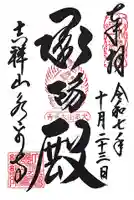 奉拝
令和七年
十月二十三日
承陽殿
吉祥山永平寺